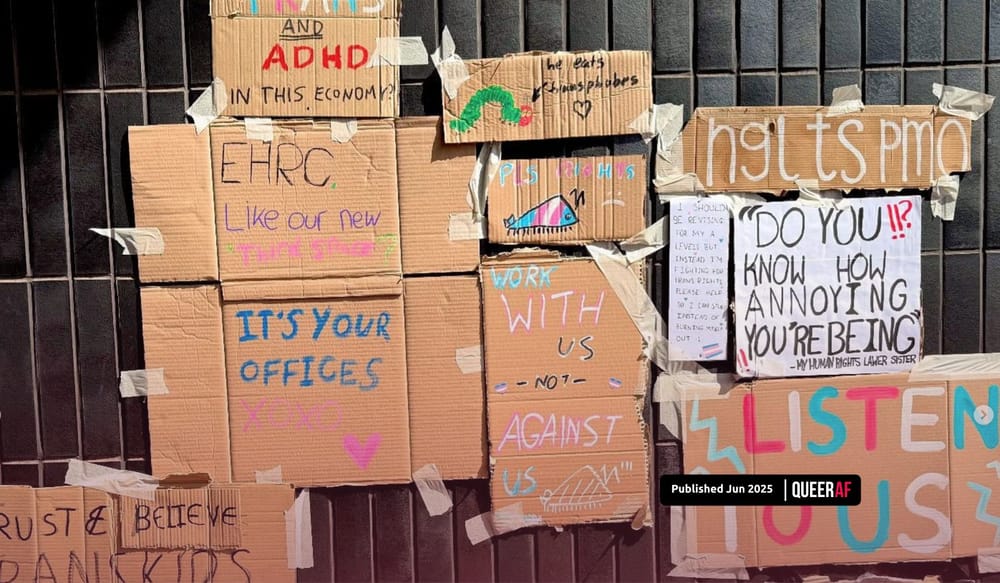 TRANS
AND
ADHD
IN THIS ECONOMY?
he eats
transphobes
EHRC.
Like our new
"THIRD SPACE"?
IT'S YOUR
OFFICES
XOXO
PLS RIGHTS
WORK
WITH
US
- NOT -
AGAINST
US
ngl ts pmo
I SHOULD
BE REVISING
FOR MY A
LEVELS BUT
INSTEAD I'M
FIGHTING FOR
TRANS RIGHTS
PLEASE HELP
SO I CAN STUDY
INSTEAD OF
BURNING MYSELF
OUT :(
"DO YOU !!?
KNOW HOW
ANNOYING
YOU'RE BEING"
- MY HUMAN RIGHTS LAWER SISTER
LISTEN
TO US
RUST & BELIEVE
RANS KIDS
Published Jun 2025 | QUEERAF